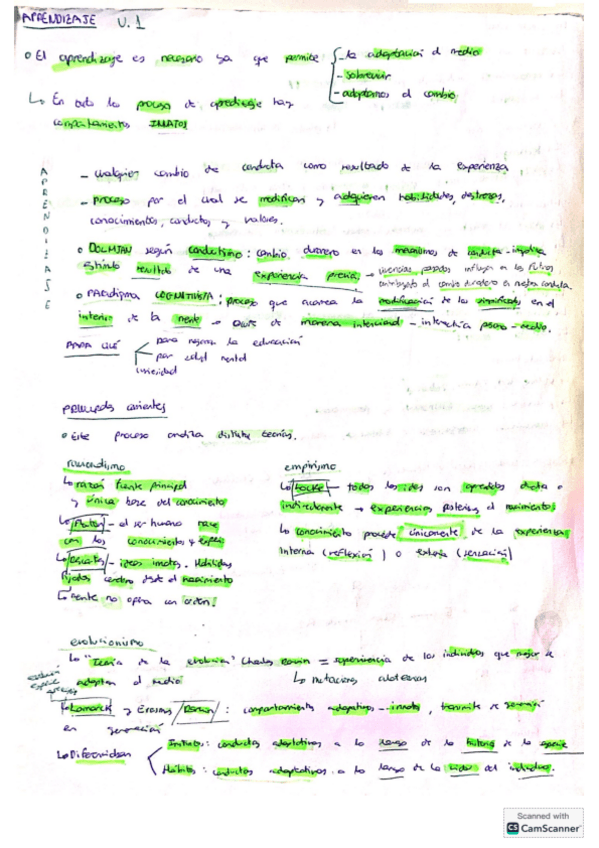 APRENDIZAJE U.1
El aprendizaje es necesario ya que permite
- la adaptación al medio
- sobrevivir
- adaptarnos al cambio
En todo proceso de aprendizaje hay
comportamientos INNATOS
APRENDIZAJE
- cualquier cambio de conducta como resultado de la experiencia
- proceso por el cual se modifican y adquieren habilidades, destrezas,
conocimientos, conductas y valores.
según conductismo: cambio duradero en los mecanismos de conducta
estímulo resultado de una experiencia previa →
PARADIGMA COGNITIVISTA: proceso que acarrea la modificación de los significados en el
interior de la mente → de manera intencional - medio.
PARA QUÉ
para mejorar la educación
por salud mental
curiosidad
PRINCIPALES corrientes
Este proceso analiza distintas teorías.
racionalismo
razón fuente principal
y única base del conocimiento
Platón - el ser humano nace
con los conocimientos
- ideas innatas. Habilidades
desde el nacimiento
mente no opera sin orden.
empirismo
Locke - todas las ideas son aprendidas directa o
indirectamente → experiencias posteriores al nacimiento.
conocimiento procede únicamente de la experiencia
Interna (reflexión) o externa (sensación)
evolucionismo
"Teoría de la evolución" Charles Darwin = supervivencia de los individuos que mejor se
adaptan al medio
mutaciones aleatorias
Lamarck y Erasmus Darwin: comportamientos adaptativos - innatos, transmite de generación
en generación
Diferencian
Instintos: conductas adaptativas a lo largo de la historia de la especie
Hábitos: conductas adaptativas a lo largo de la vida del individuo.
Scanned with
CS CamScanner